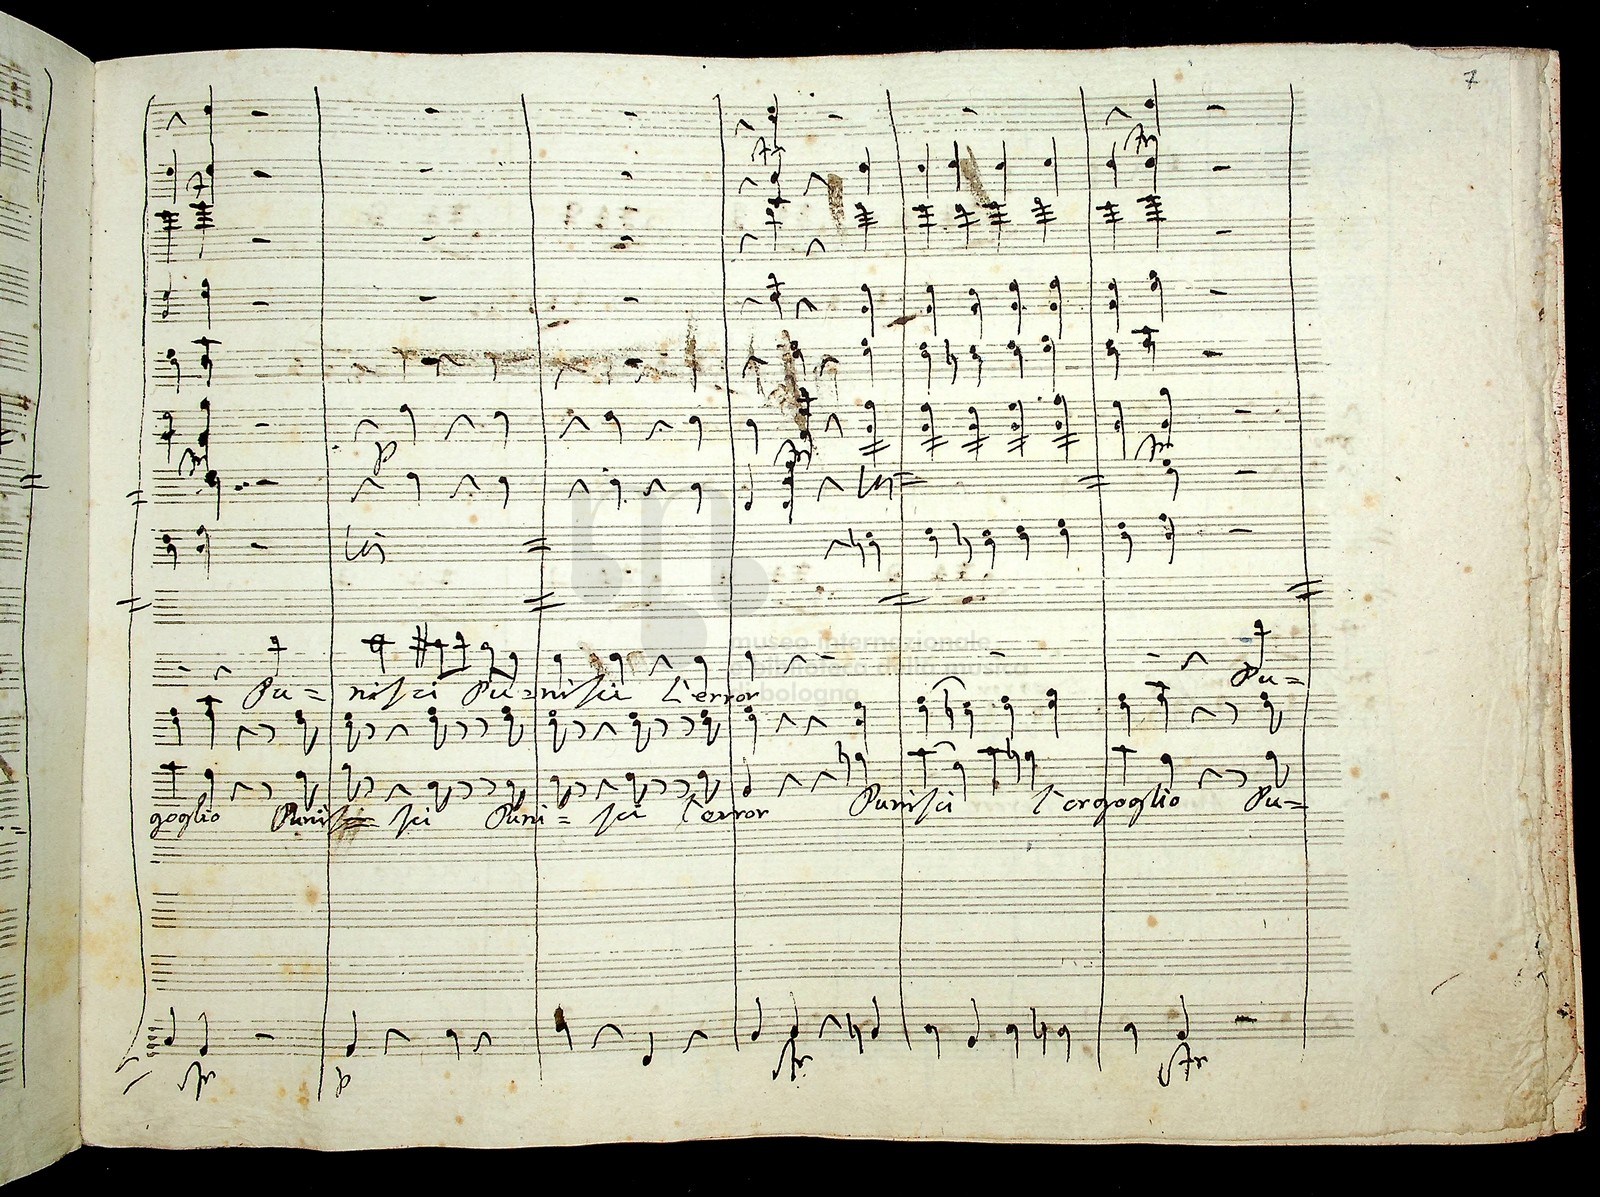 7
museo internazionale
e biblioteca della musica
di bologna
Pu= nisci Pu=nisci L'error Pu=
goglio Punisci Puni= sci L'error Punisci L'orgoglio Pu=
p